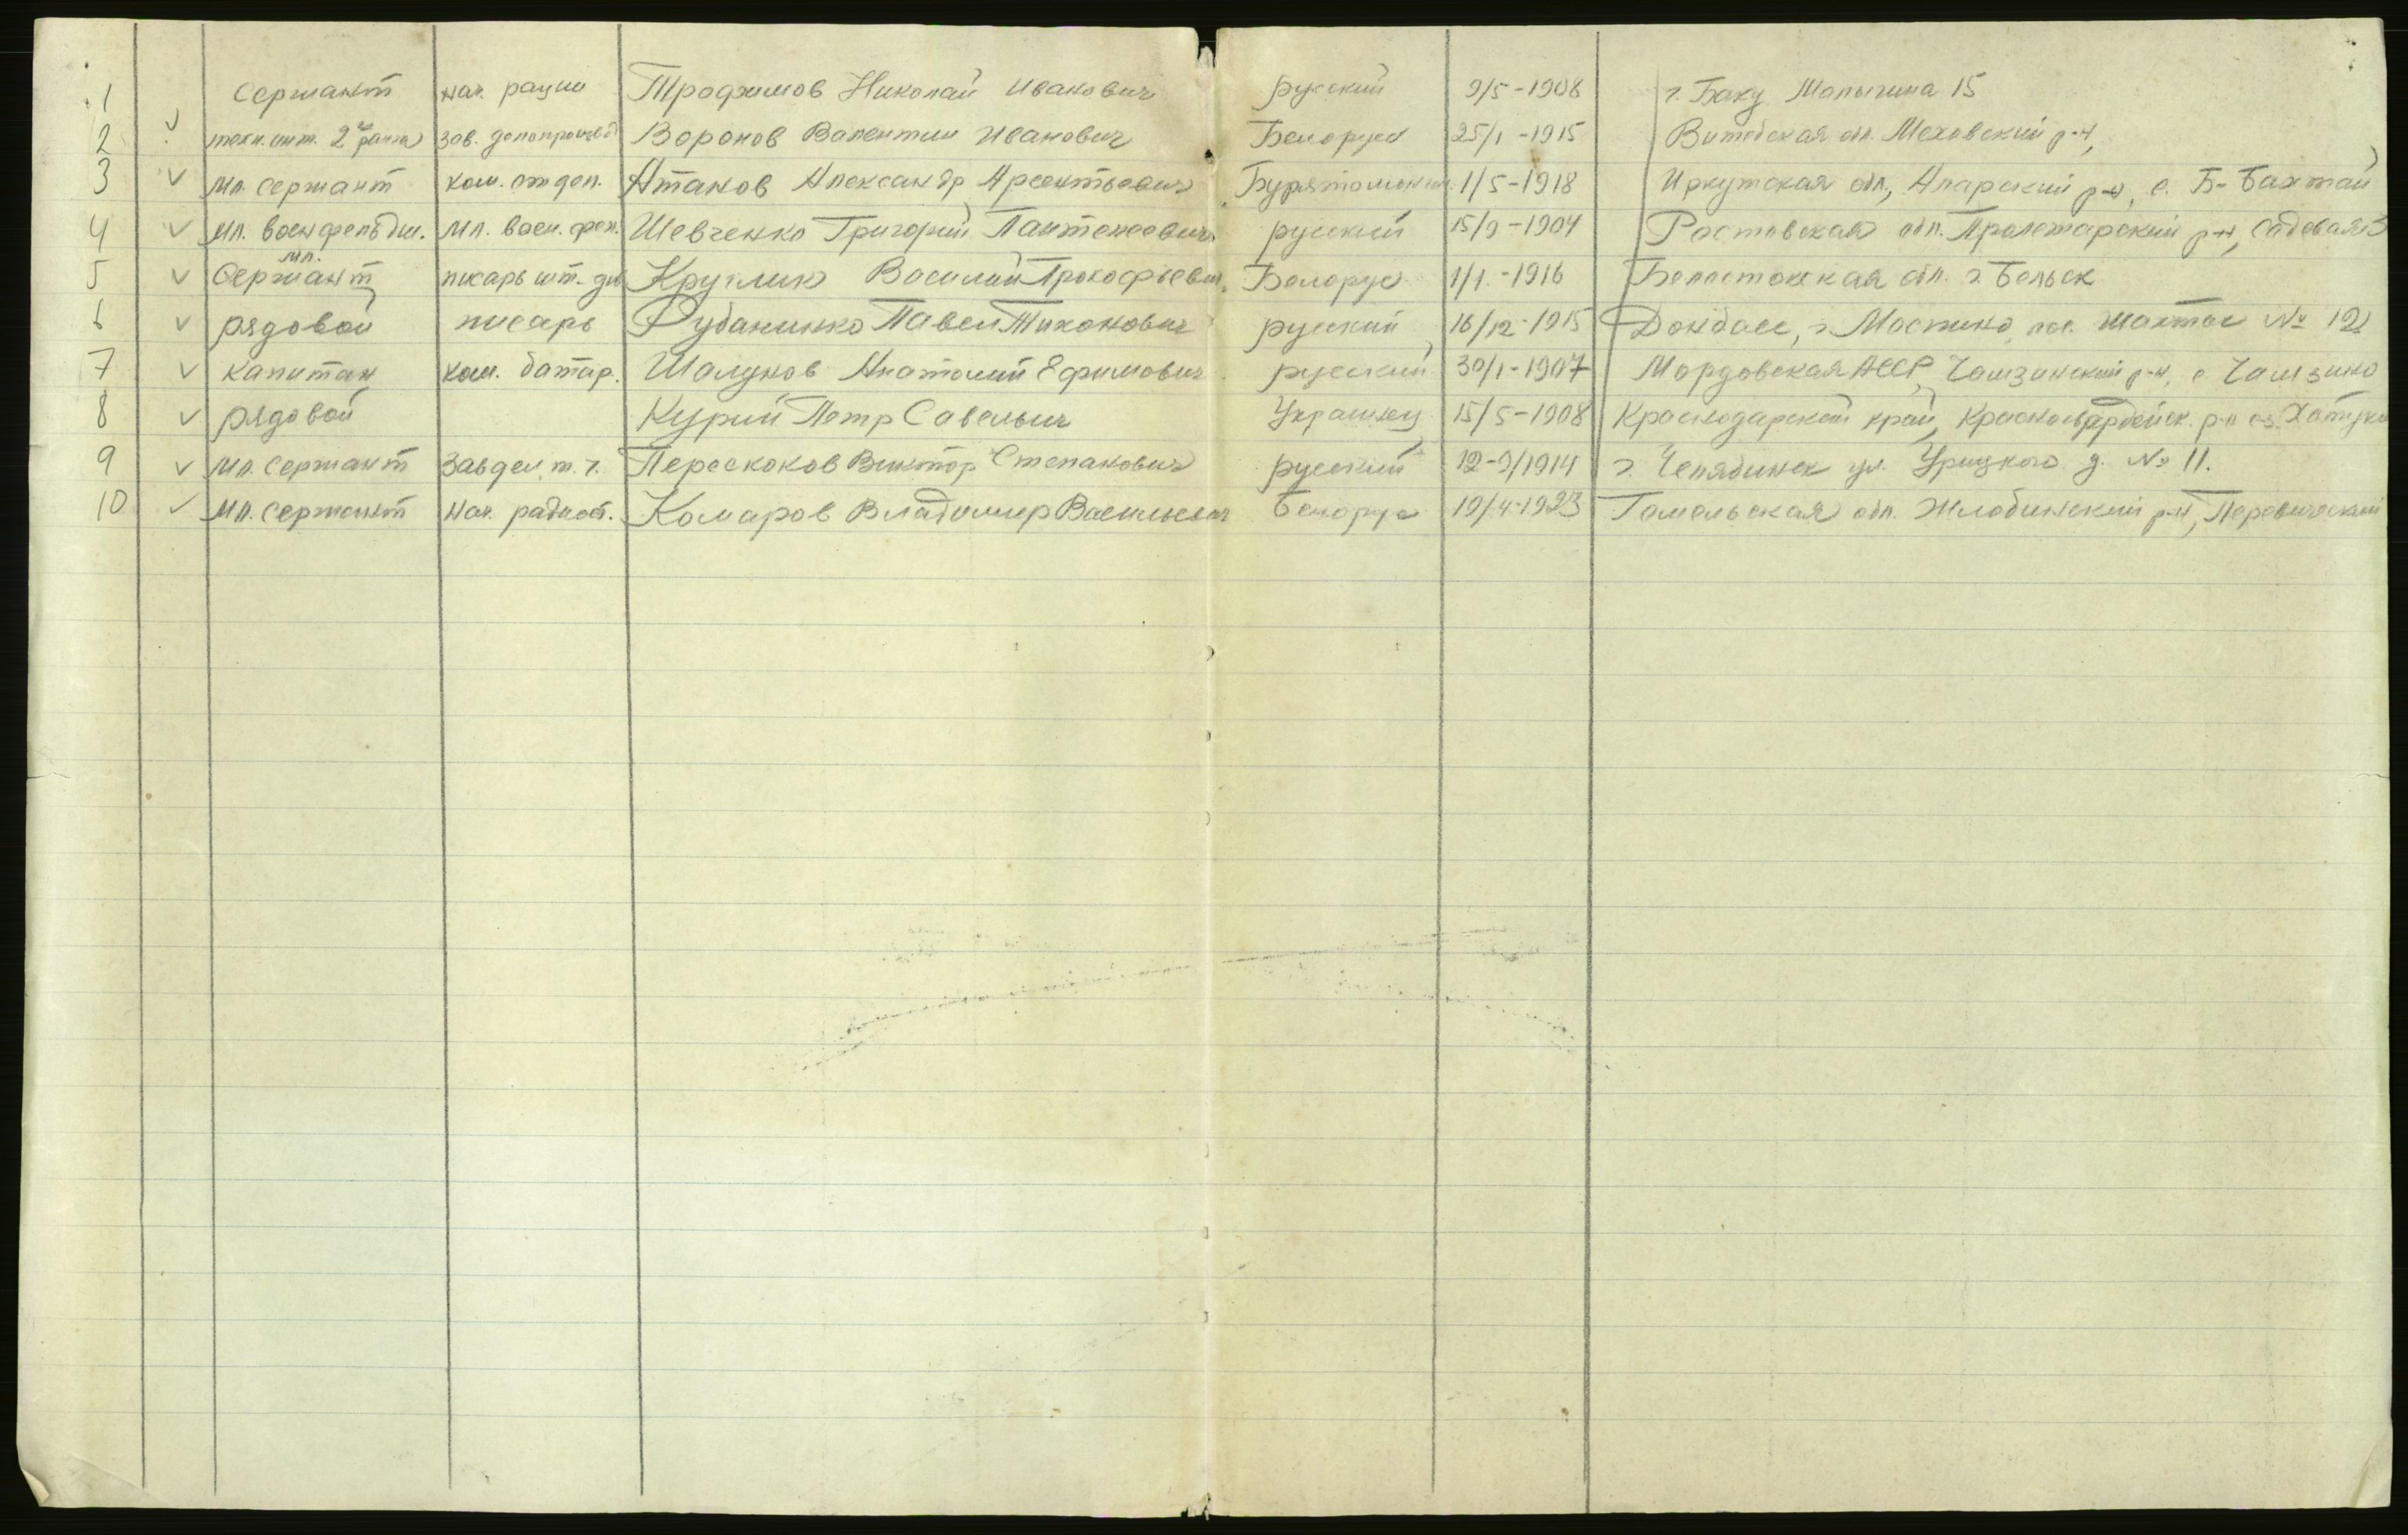 1 сержант нач. рации Трофимов Николай Иванович русский 9/5-1908 г. Баку Малыгина 15
2 ✓ техн. инт. 2го ранга зав. делопроизвод Воронов Валентин Иванович Белорус 25/1-1915 Витебская обл. Меховский р-н,
3 ✓ мл. сержант ком. отдел. Атанов Александр Арсентьевич Бурятомонгол 1/5-1918 Иркутская обл, Аларский р-н, с. Б-Бахтай
4 ✓ мл. военфельдш. мл. воен. фел. Шевченко Григорий русский 15/9-1904 Ростовская обл. Пролетарский р-н, Садовая 3
5 ✓ мл. сержант писарь шт. див Круглик Василий Прокофьевич Белорус 1/1-1916 Белостокская обл. г. Бельск
6 ✓ рядовой писарь Рубанинко Павел Тихонович русский 16/12-1915 Донбасс, г. Моспино, пос. шахты № 12
7 ✓ капитан ком. батар. Шалунов Анатолий Ефимович русский 30/1-1907 Мордовская АССР, Чамзинский р-н, с. Чамзино
8 ✓ рядовой Курий Петр Савельич Украинец 15/5-1908 Краснодарский край, Красногвардейск. р-н
9 ✓ мл. сержант Завдел. т. ч. Перескоков Виктор Степанович русский 12-9/1914 г. Челябинск ул. Урицкого д. № 11.
10 ✓ мл. сержант нач. радиост. Комаров Владимир Васильевич Белорус 19/4-1923 Гомельская обл. Жлобинский р-н,